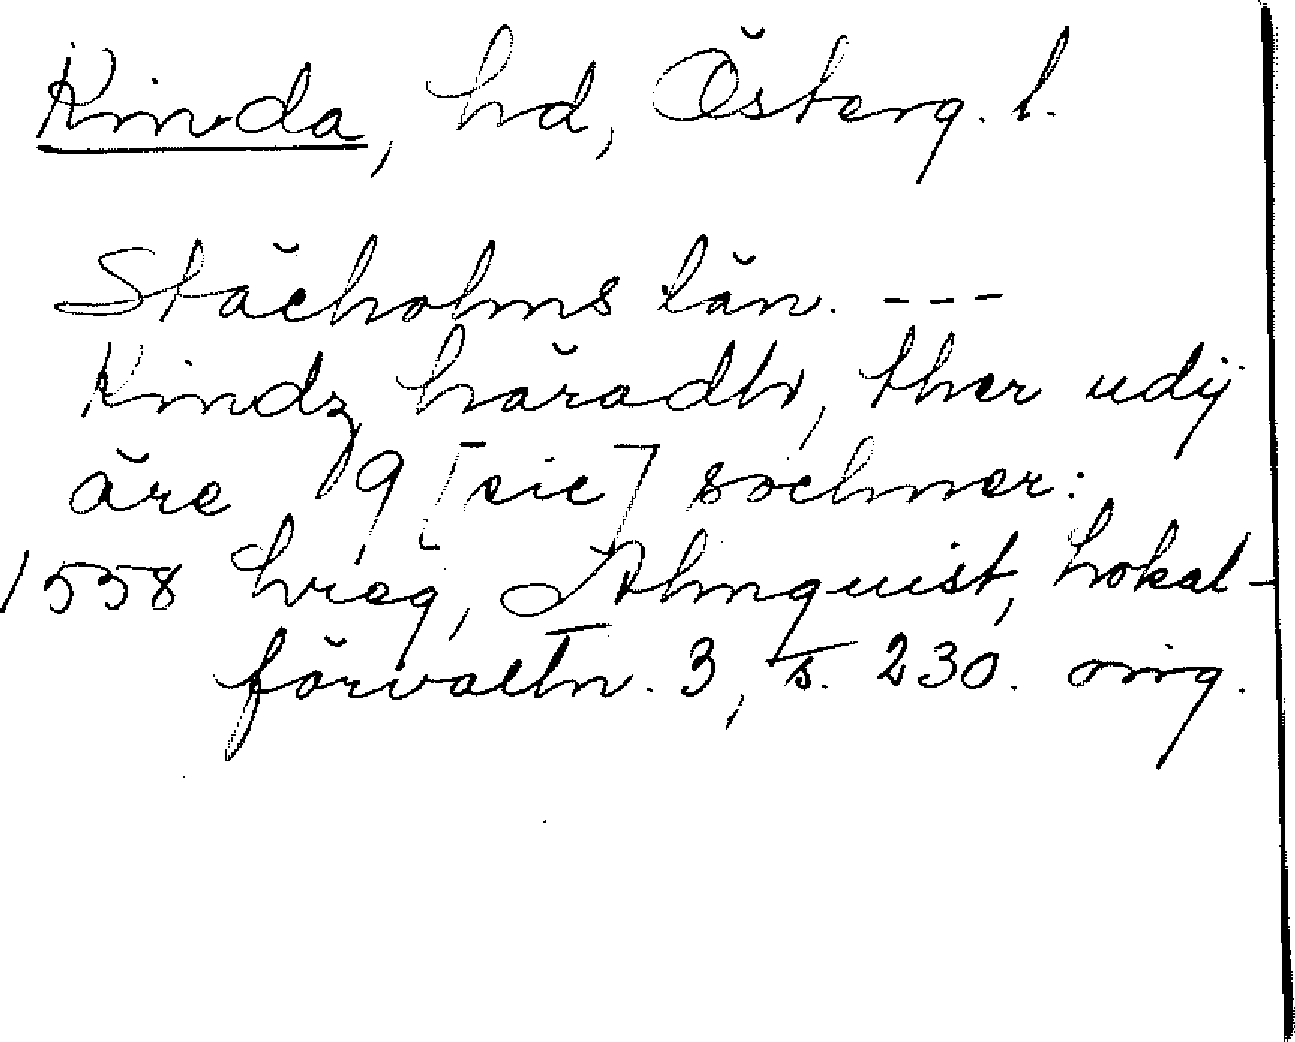 Kinda, hd, Österg. l.
Stächolms län. ---
Kindz häradh, ther udij
äre 9 [sic] sochner:
1558 hreg, Almquist, Lokal-
förvaltn. 3, s. 230. orig.